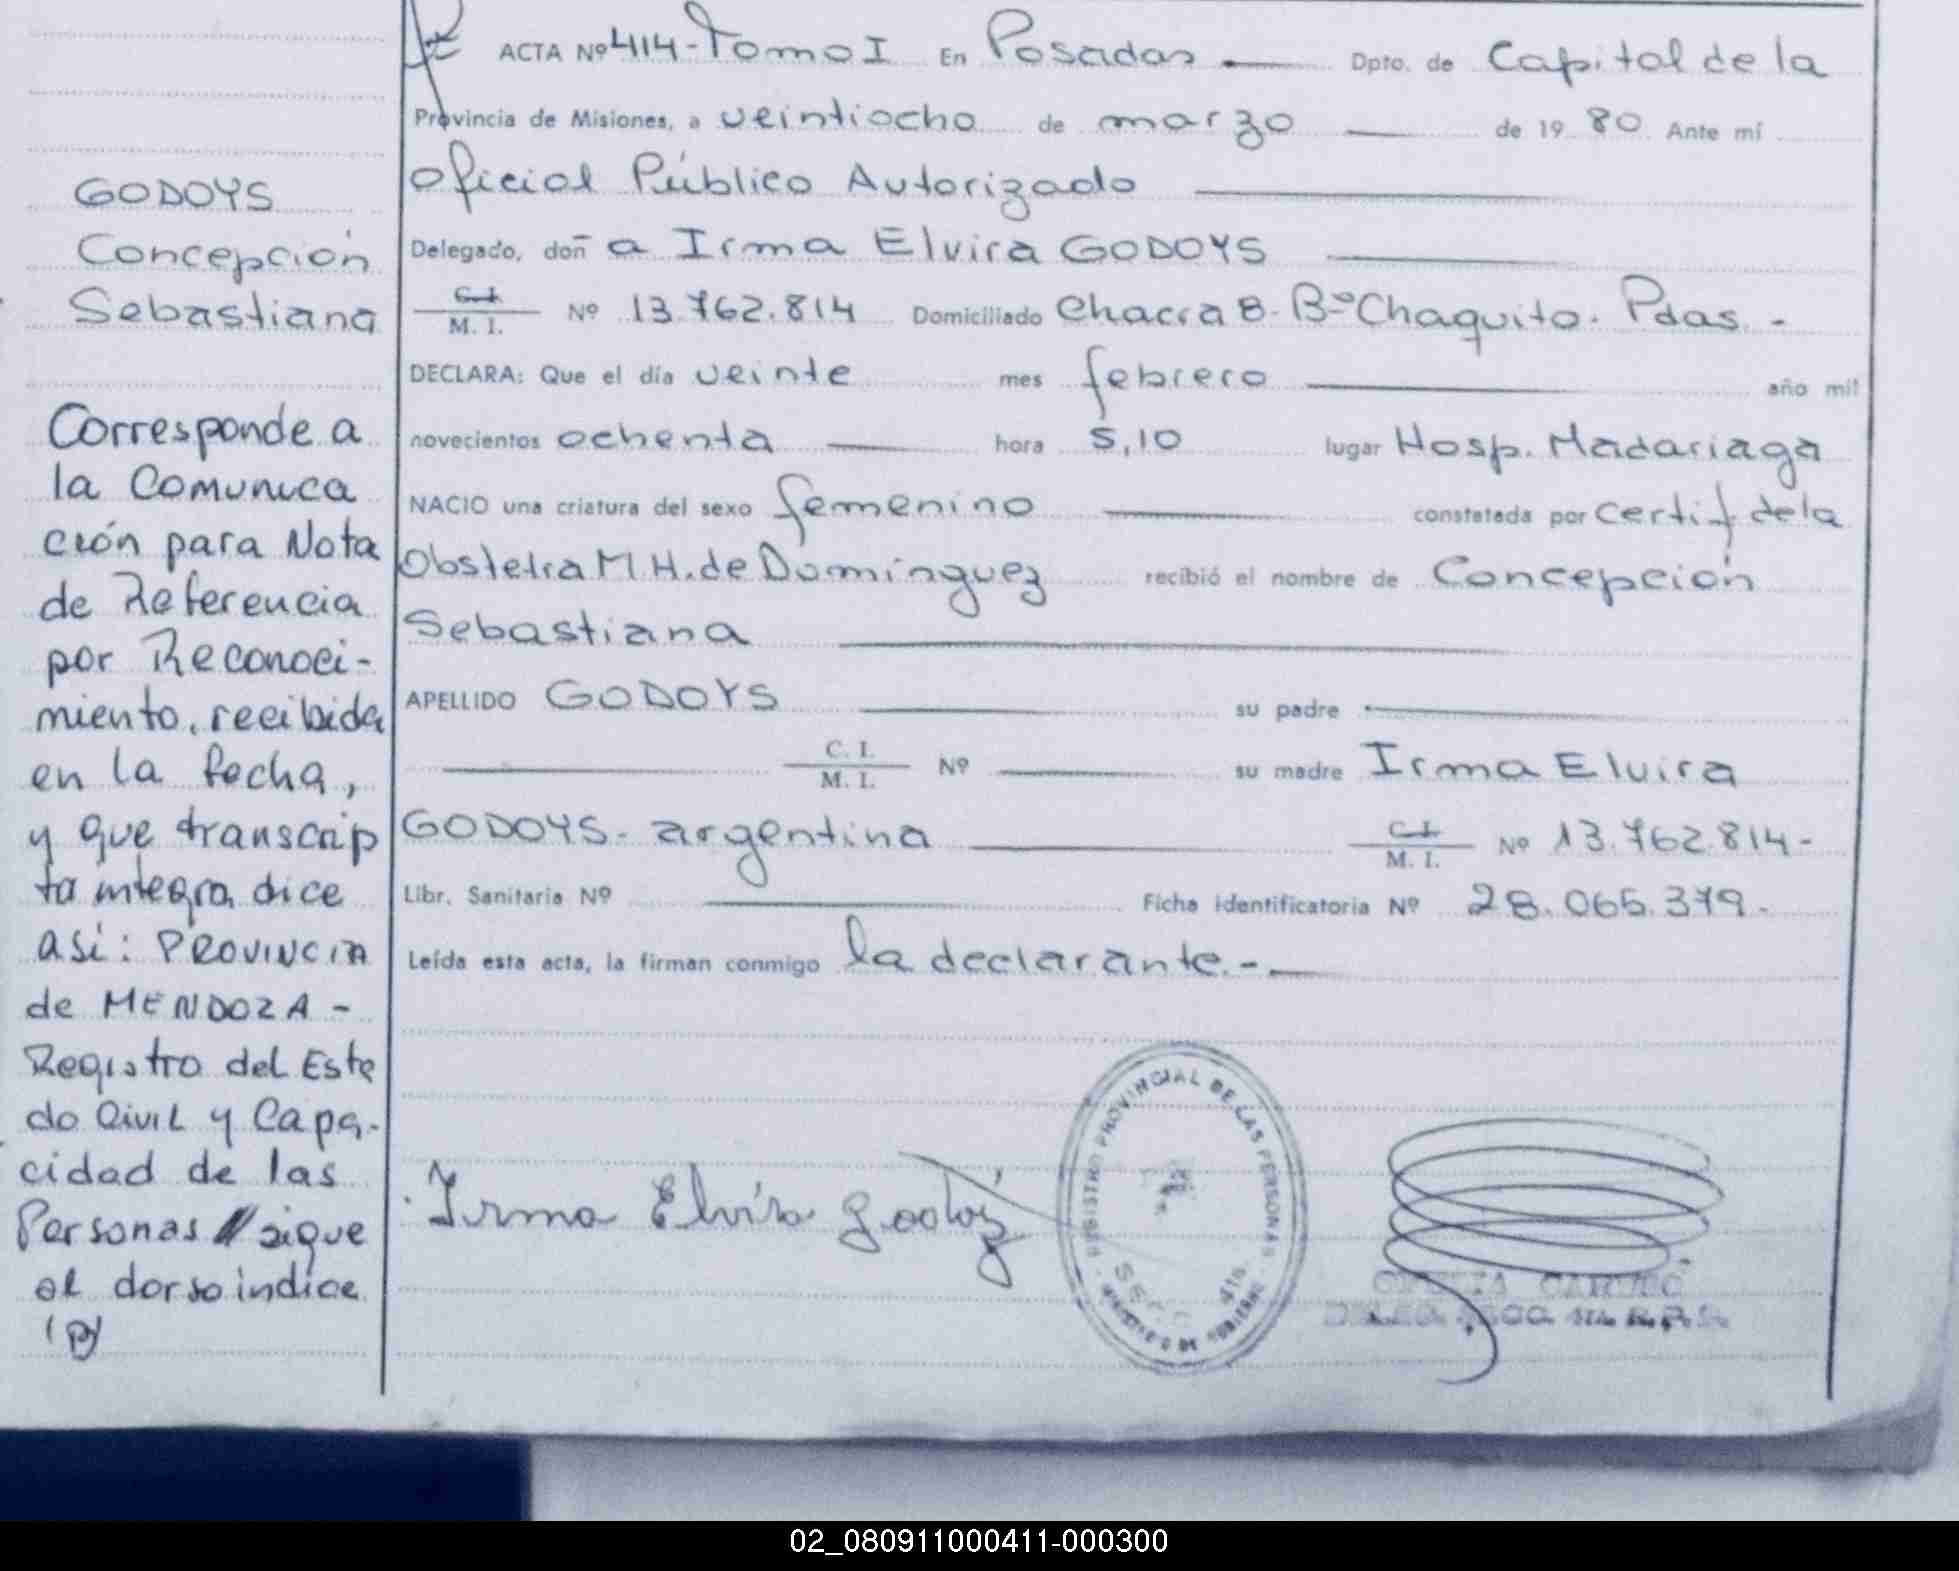 ACTA Nº 414 - Tomo I En Posadas Dpto. de Capital de la
Provincia de Misiones, a veintiocho de marzo de 19 80 Ante mí
Oficial Público Autorizado
Delegado, doñ a Irma Elvira GODOYS
C. I. / M. I. Nº 13.762.814 Domiciliado Chacra 8. Bº Chaquito. Pdas. -
DECLARA: Que el día veinte mes febrero año mil
novecientos ochenta hora 5,10 lugar Hosp. Madariaga
NACIO una criatura del sexo femenino constatada por certif de la
Obstetra M.H. de Domínguez recibió el nombre de Concepción
Sebastiana
APELLIDO GODOYS su padre
C. I. / M. I. Nº su madre Irma Elvira
GODOYS - argentina C. I. / M. I. Nº 13.762.814 -
Libr. Sanitaria Nº Ficha Identificatoria Nº 28.065.379.
Leída esta acta, la firman conmigo la declarante. -
GODOYS
Concepción
Sebastiana
Corresponde a
la Comunica
ción para Nota
de Referencia
por Reconoci-
miento, recibida
en la fecha,
y que transcrip
ta integra, dice
asi: PROVINCIA
de MENDOZA -
Registro del Esta
do Civil y Capa-
cidad de las
Personas // sigue
al dorso indice
(P)
Irma Elvira Godoy
REGISTRO PROVINCIAL DE LAS PERSONAS
02_080911000411-000300